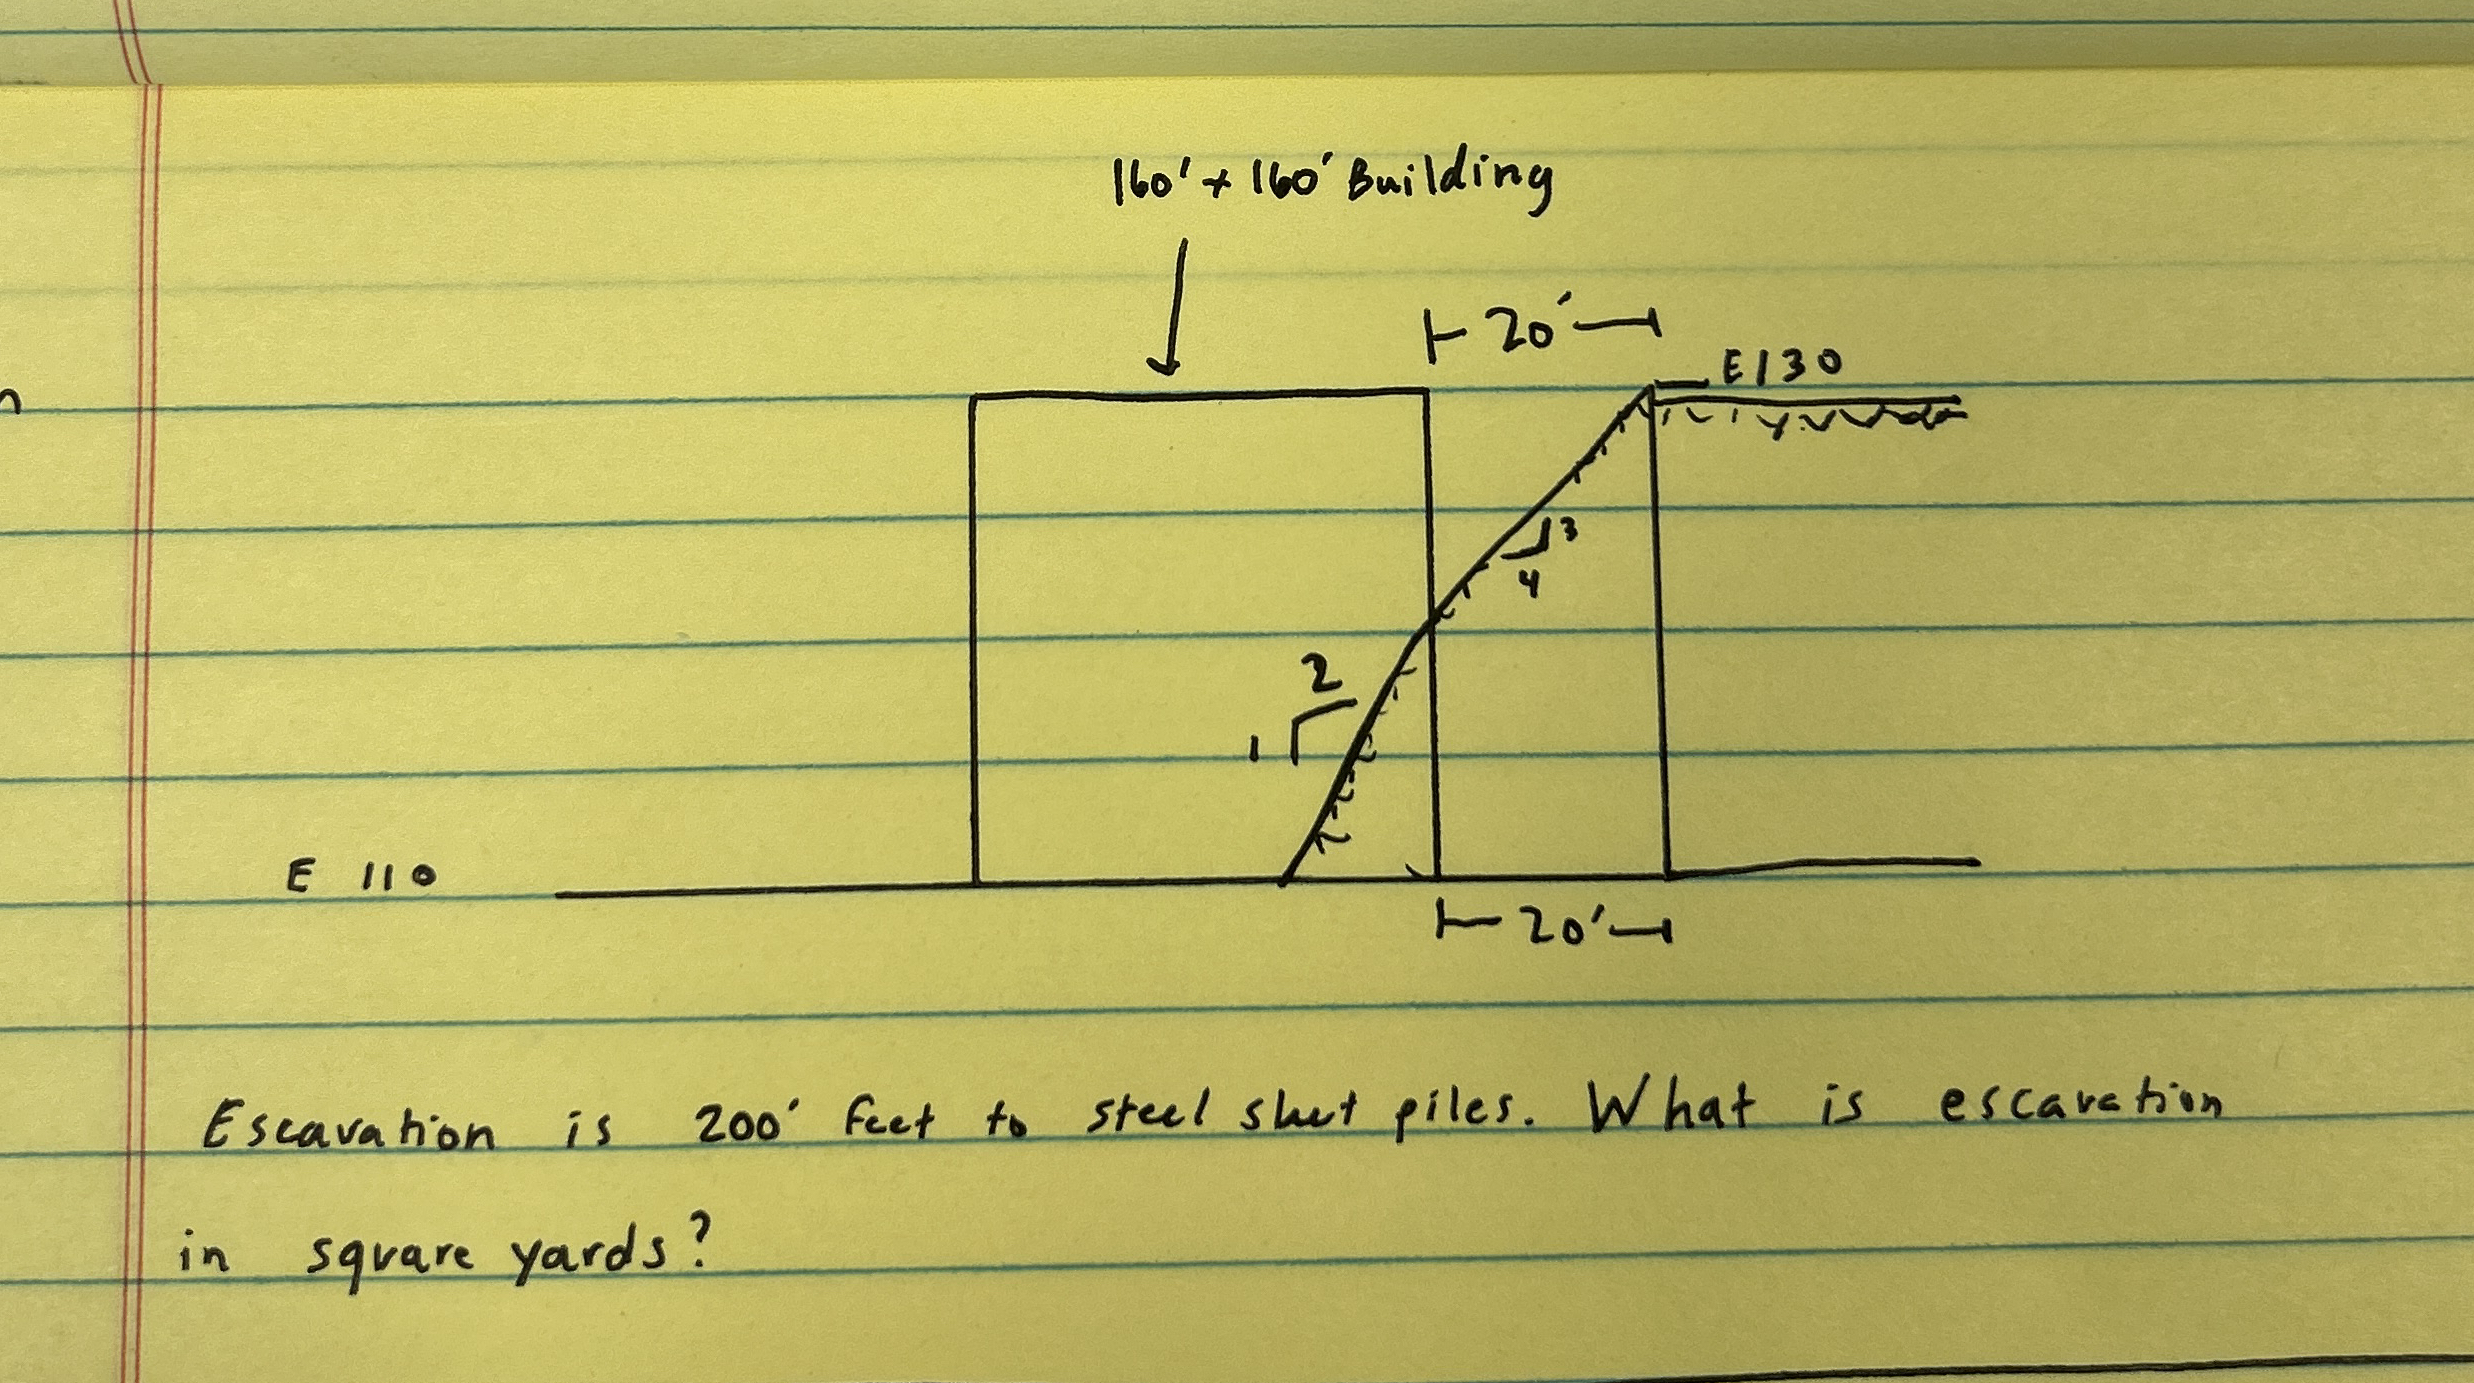 160' x 160' Building
20'
E130
n
3
4
2
1
E 110
20'
Escavation is 200' feet to steel shet piles. What is escavation
in square yards?